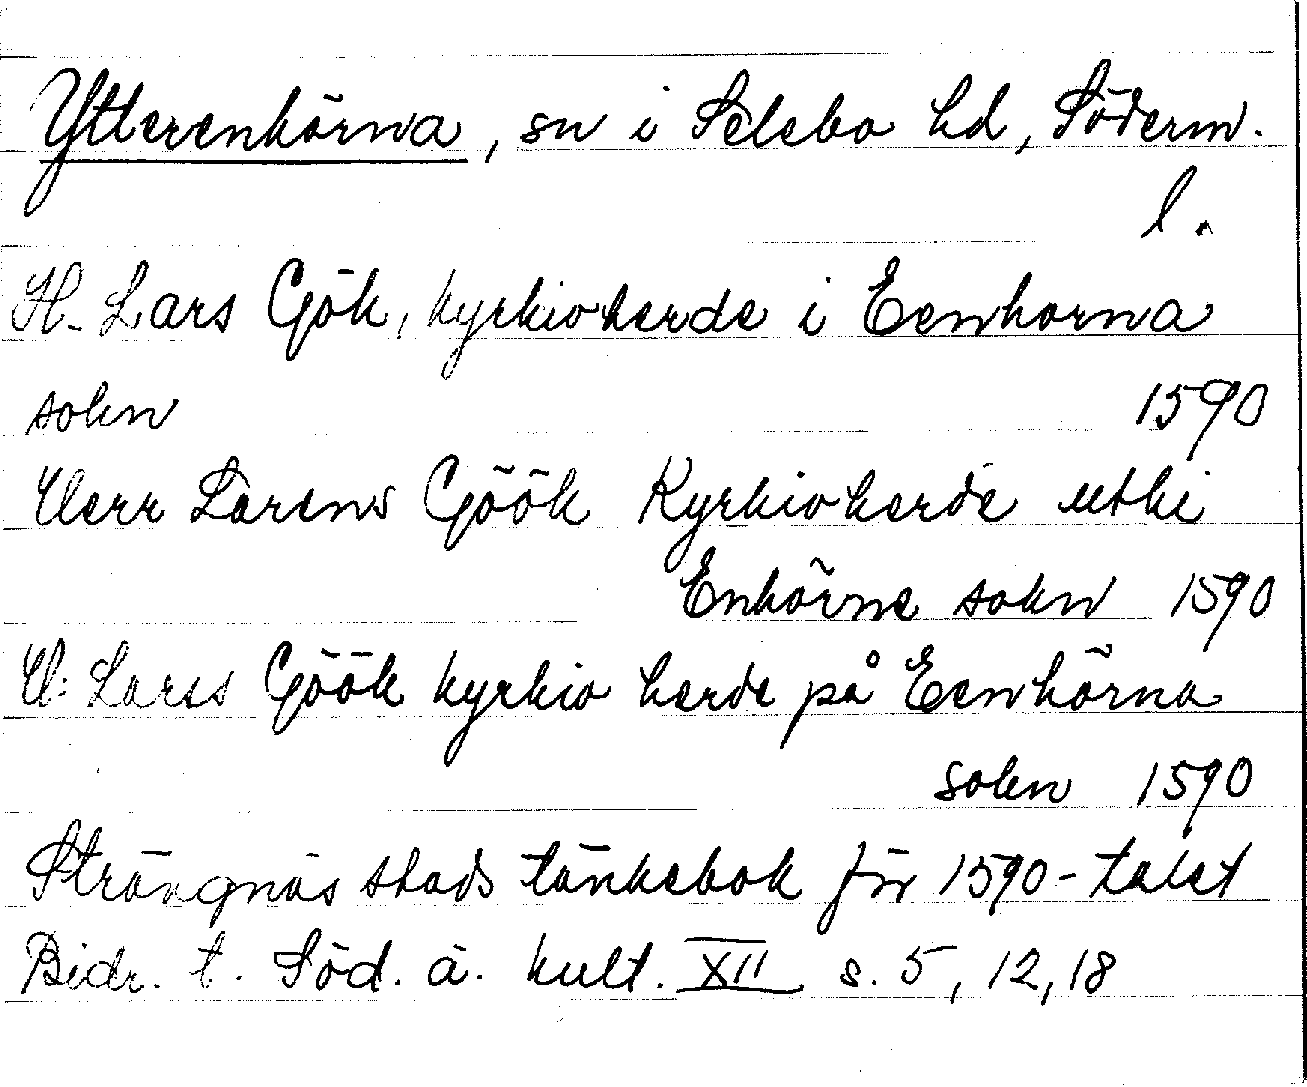 Ytterenhörna, sn i Selebo hd, Söderm.
l.
H. Lars Gök, kyrkioherde i Eenhorna
sokn 1590
Herr Larens Göök Kyrkioherde uthi
Enhörne sokn 1590
H: Lars Göök kyrkio herde på Eenhörna
sokn 1590
Strängnäs stads tänkebok för 1590-talet
Bidr. t. Söd. ä. kult. XII s. 5, 12, 18